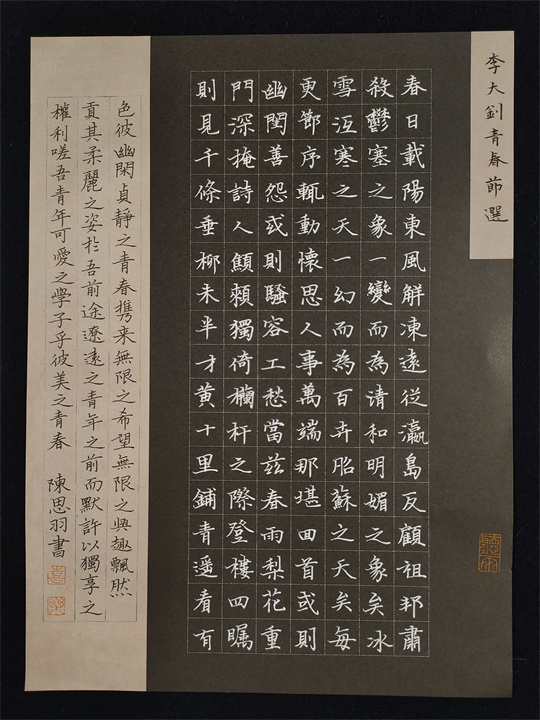 李大釗青春節選
春日載陽東風解凍遠從瀛島反顧祖邦肅
殺鬱塞之象一變而為清和明媚之象矣冰
雪沍寒之天一幻而為百卉昭蘇之天矣每
更節序輒動懷思人事萬端那堪回首或則
幽閨善怨或則騷容工愁當茲春雨梨花重
門深掩詩人顦顇獨倚欄杆之際登樓四矚
則見千條垂柳未半才黃十里鋪青遙看有
色彼幽閑貞靜之青春攜来無限之希望無限之興趣飄然
貢其柔麗之姿於吾前途遼遠之青年之前而默許以獨享之
權利嗟吾青年可愛之學子乎彼美之青春 陳思羽書